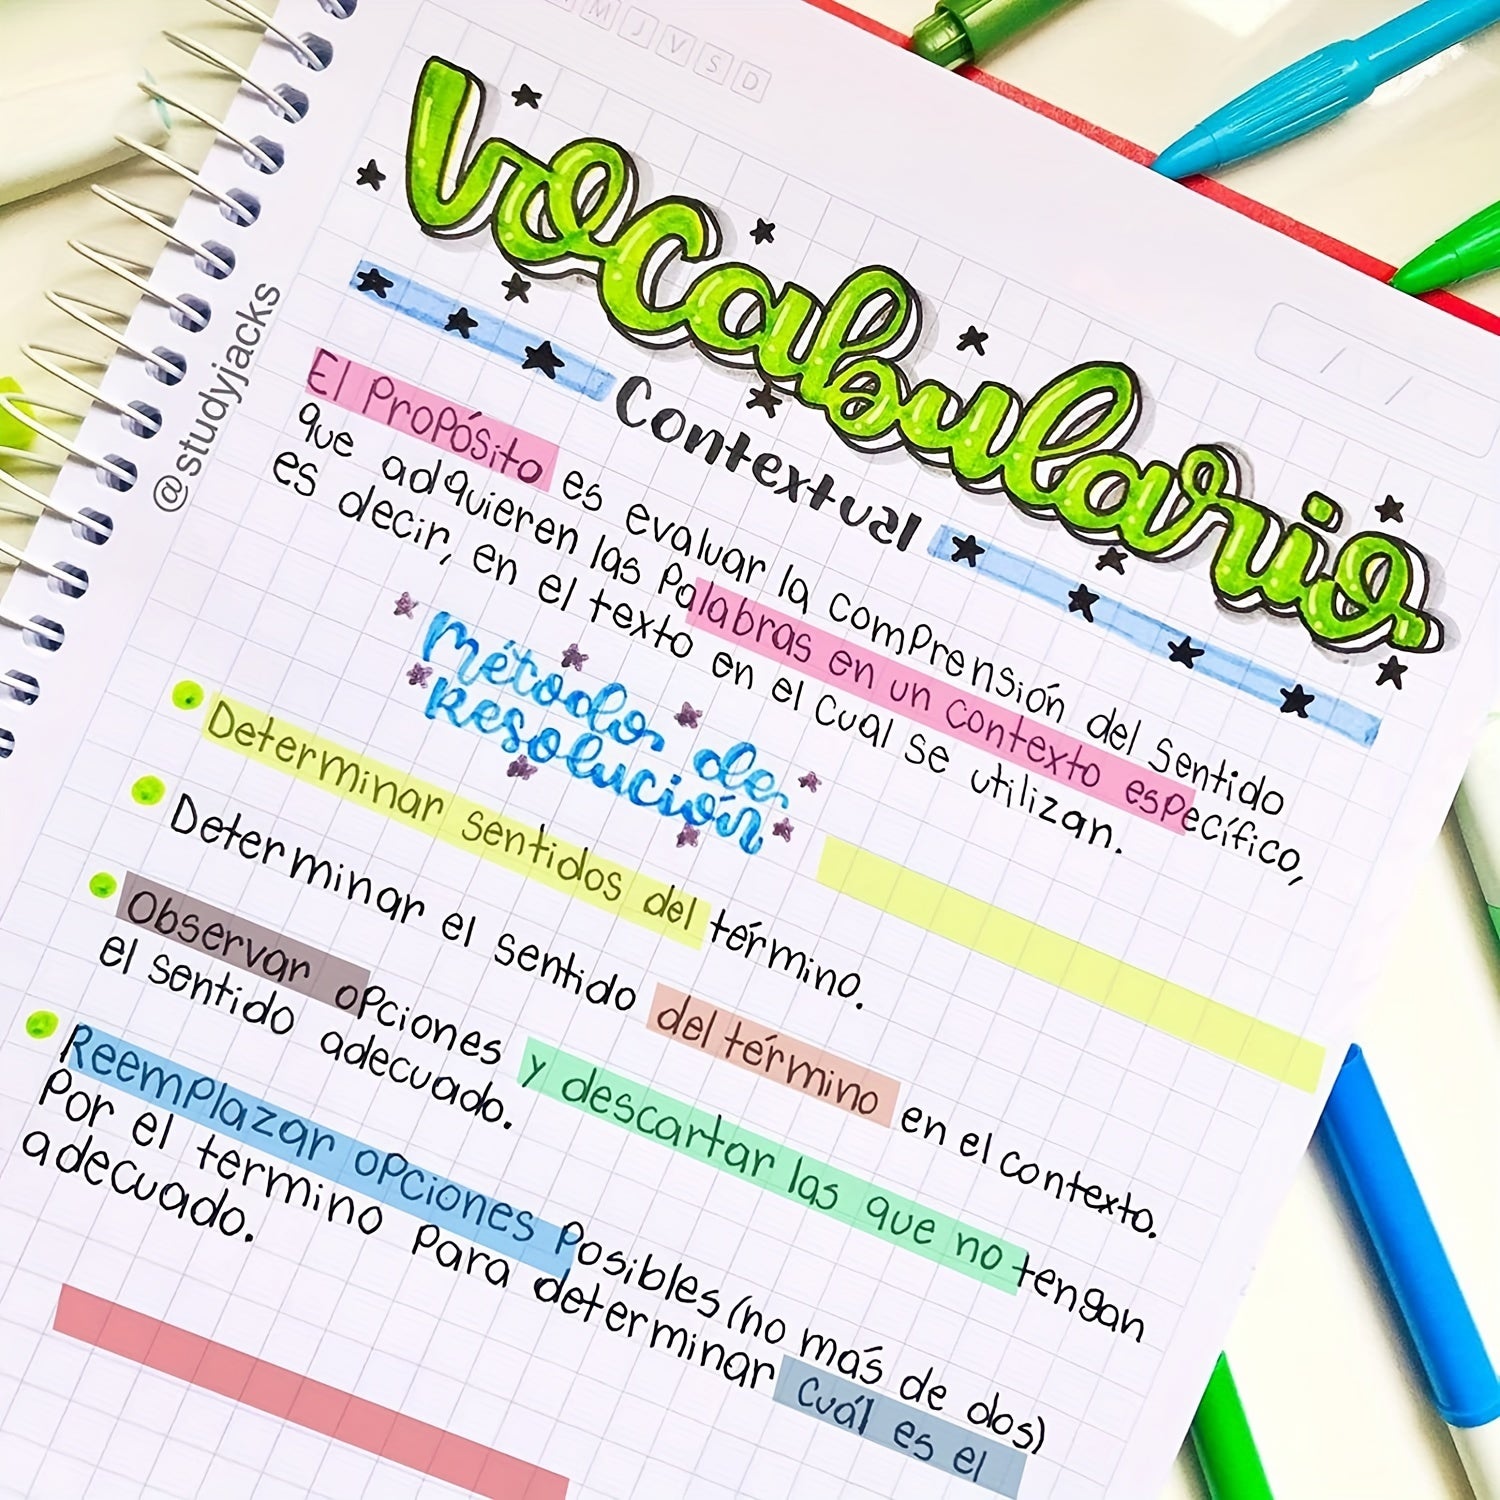 M J V S D
Vocabulario
Contextual
El Propósito es evaluar la comprensión del sentido
que adquieren las Palabras en un contexto específico,
es decir, en el texto en el cual se utilizan.
Métodos de
Resolución
Determinar sentidos del término.
Determinar el sentido del término en el contexto.
Observar opciones y descartar las que no tengan
el sentido adecuado.
Reemplazar opciones posibles (no más de dos)
Por el termino para determinar cuál es el
adecuado.
@studyjacks